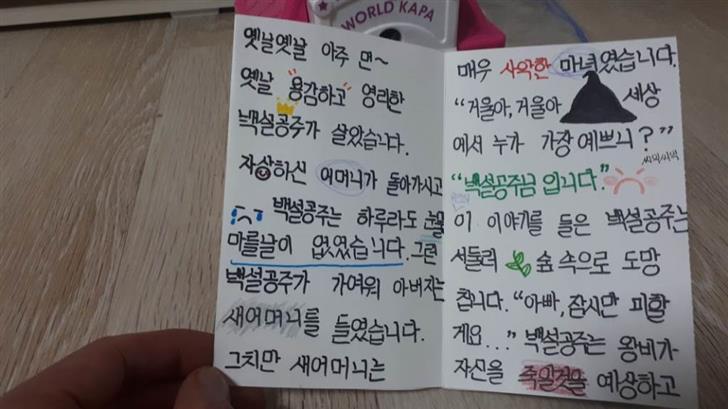 WORLD KAPA
옛날옛날 아주 먼~
옛날 용감하고 영리한
백설공주가 살았습니다.
자상하신 어머니가 돌아가시고
백설공주는 하루라도 눈물
마를날이 없었습니다. 그런
백설공주가 가여워 아버지는
새어머니를 들였습니다.
그치만 새어머니는
매우 사악한 마녀였습니다.
"거울아, 거울아 세상
에서 누가 가장 예쁘니?"
씨익씨익
"백설공주님 입니다."
이 이야기를 들은 백설공주는
서둘러 숲 속으로 도망
칩니다. "아빠, 잠시만 피할
게요..." 백설공주는 왕비가
자신을 죽일것을 예상하고